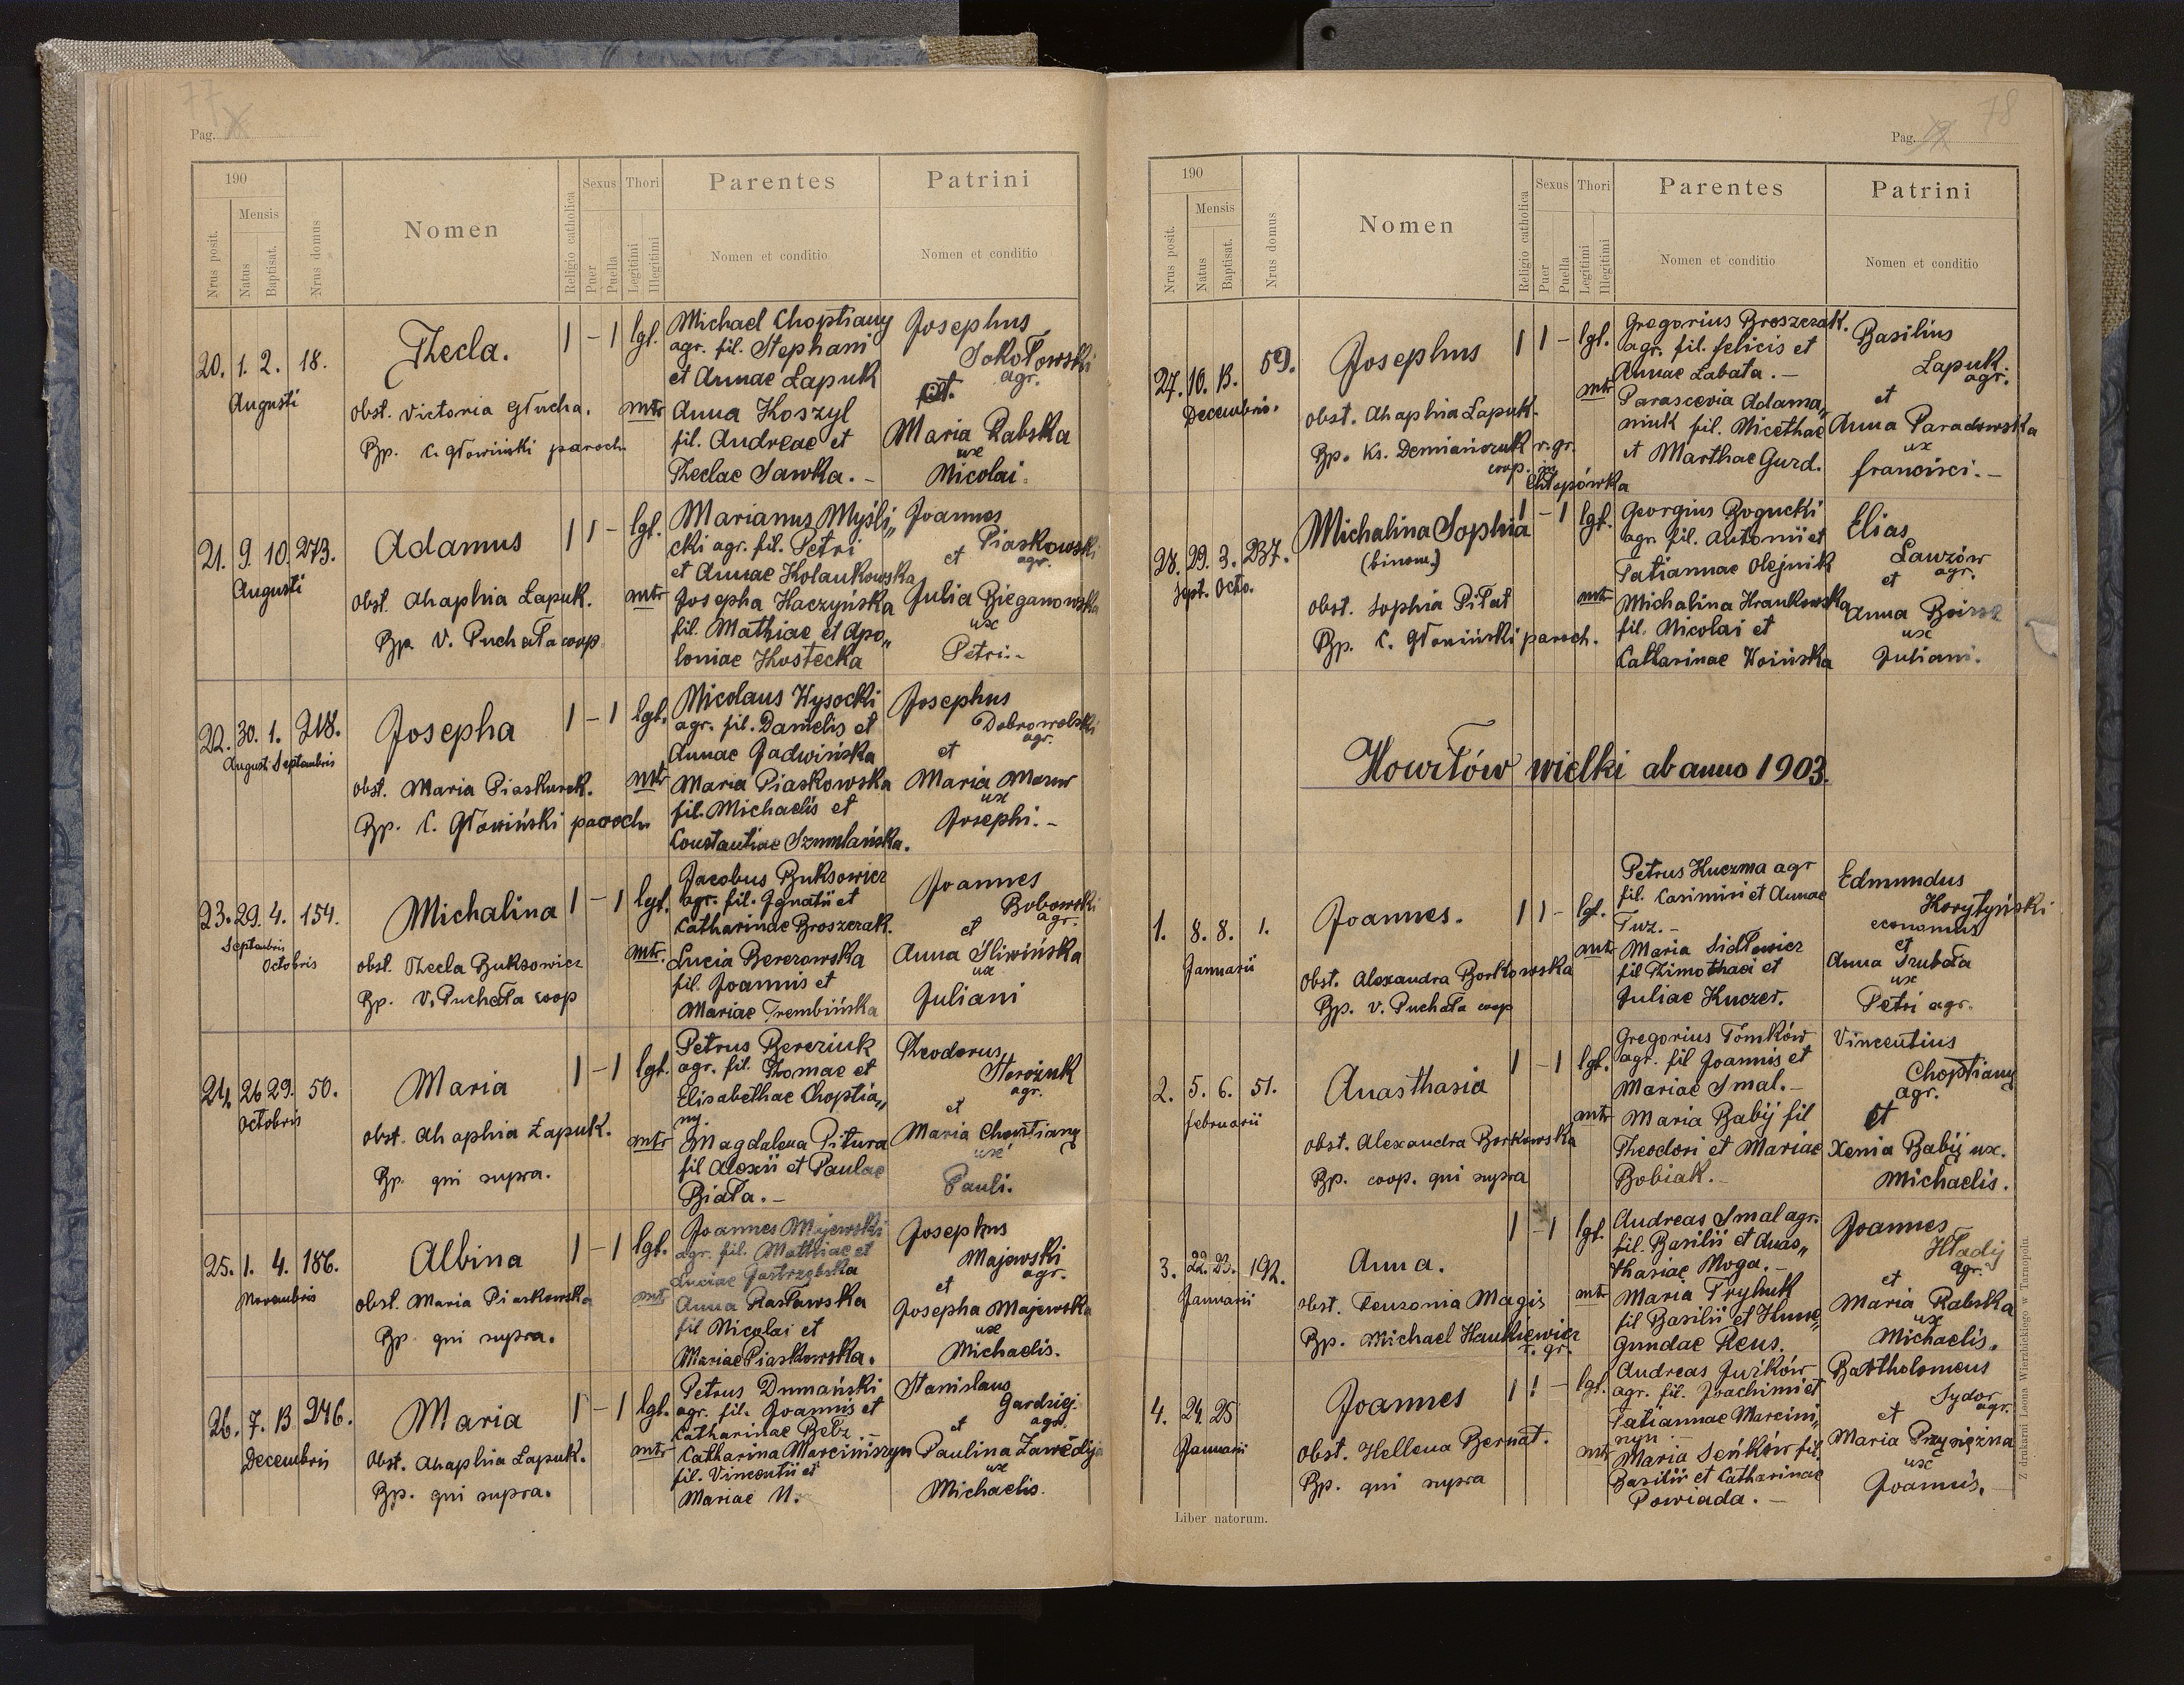 77
Pag.
190
Mensis
Nrus posit.
Natus
Baptisat.
Nrus domus
Nomen
Religio catholica
Sexus
Puer
Puella
Thori
Legitimi
Illegitimi
Parentes
Nomen et conditio
Patrini
Nomen et conditio
20. 1. 2. 18.
Augusti
Thecla.
1 – 1 lgl.
obst. Victoria Głucha.
Bp. C. Głowiński paroch
Michael Choptiany
agr. fil. Stephani
et Annae Łapuk
mtr Anna Koszyl
fil. Andreae et
Theclae Sawka. –
Josephus
Sokołowski
agr.
et.
Maria Rabska
ux
Nicolai.
21. 9. 10. 273.
Augusti
Adamus
1 1 – lgl.
obst. Ahaphia Łapuk.
Bp. V. Puchała coop
Marianus Myśli„
cki agr. fil. Petri
et Annae Kolankowska
mtr Josepha Haczyńska
fil. Mathiae et Apo„
loniae Kostecka
Joannes
Piaskowski
et agr.
Julia Bieganowska
ux
Petri. –
22. 30. 1. 218.
Augusti Septembris
Josepha
1 – 1 lgl.
obst. Maria Piaskurek.
Bp. C. Głowiński paroch
Nicolaus Wysocki
agr. fil. Danielis et
Annae Jadwińska
mtr Maria Piaskowska
fil. Michaelis et
Constantiae Szumlańska.
Josephus
Dobrowolski
agr.
et
Maria Mazur
ux
Josephi. –
23. 29. 4. 154.
Septembris
Octobris
Michalina
1 – 1 lgl.
obst. Thecla Buksowicz
Bp. V. Puchała coop
Jacobus Buksowicz
agr. fil. Ignatii et
Catharinae Broszczak.
mtr. Lucia Berezowska
fil. Joannis et
Mariae Trembińska
Joannes
Bobowski
agr.
et
Anna Śliwińska
ux
Juliani
24. 26 29. 50.
Octobris
Maria
1 – 1 lgl.
obst. Ahaphia Łapuk.
Bp. qui supra.
Petrus Bereziuk
agr. fil. Thomae et
Elisabethae Choptia„
ny.
mtr Magdalena Pitura
fil Alexii et Paulae
Biała. –
Theodorus
Storożuk
agr.
et
Maria Choptiany
ux
Pauli.
25. 1. 4. 186.
Novembris
Albina
1 – 1 lgl.
obst. Maria Piaskowska
Bp. qui supra.
Joannes Majewski
agr. fil. Matthiae et
Luciae Jastrzębska
mtr Anna Rasławska
fil Nicolai et
Mariae Piaskowska.
Josephus
Majewski
agr.
et
Josepha Majewska
ux
Michaelis.
26. 7. 13. 246.
Decembris
Maria
1 – 1 lgl.
obst. Ahaphia Łapuk.
Bp. qui supra.
Petrus Dumański
agr. fil. Joannis et
Catharinae Bełz. –
mtr Catharina Marciniszyn
fil. Vincentii et
Mariae N.
Stanislaus
Gardzij.
et agr.
Paulina Zawedija
ux
Michaelis.
78
Pag.
190
Mensis
Nrus posit.
Natus
Baptisat.
Nrus domus
Nomen
Religio catholica
Sexus
Puer
Puella
Thori
Legitimi
Illegitimi
Parentes
Nomen et conditio
Patrini
Nomen et conditio
27. 10. 13. 59.
Decembris.
Josephus
1 1 – lgl.
obst. Ahaphia Łapuk.
Bp. Ks. Demiańczuk r. gr.
coop. in
Chłopówka
Gregorius Broszczak.
agr. fil. Felicis et
Annae Łabata. –
mtr Parascevia Adama„
niuk fil. Nicethae
et Marthae Gurd.
Basilius
Łapuk.
agr.
et
Anna Paradowska
ux
Francisci. –
28. 29. 3. 237.
Sept. Octo.
Michalina Sophia
(binom.)
1 – 1 lgl.
obst. Sophia Piłat
Bp. C. Głowiński paroch.
Georgius Bogucki
agr. fil. Antonii et
Tatiannae Olejnik
mtr Michalina Krankowska
fil. Nicolai et
Catharinae Woińska
Elias
Ławrów
et agr.
Anna
ux
Juliani.
Howiłów wielki ab anno 1903.
1. 8. 8. 1.
Januarii
Joannes.
1 1 – lgl.
obst. Alexandra Borkowska
Bp. V. Puchała coop
Petrus Kuczma agr
fil. Casimiri et Annae
Tuz. –
mtr Maria Sidłowicz
fil Timothaei et
Juliae Kuczer.
Edmundus
Korytyński
economus
et
Anna Trubała
ux
Petri agr.
2. 5. 6. 51.
Februarii
Anasthasia
1 – 1 lgl.
obst. Alexandra Borkowska
Bp. coop. qui supra
Gregorius Tomków
agr. fil Joannis et
Mariae Smal. –
mtr Maria Babij fil
Theodori et Mariae
Bobiak. –
Vincentius
Choptiany
agr.
et
Xenia Babij ux.
Michaelis.
3. 22. 23. 192.
Januarii
Anna.
1 – 1 lgl.
obst. Feuronia Magis
Bp. Michael Hankiewicz
r. gr.
Andreas Smal agr.
fil. Basilii et Anas„
thasiae Moga. –
mtr Maria Tryhuk
fil Basilii et Kune„
gundae Reus.
Joannes
Hładij
agr.
et
Maria Rabska
ux
Michaelis.
4. 24. 25
Januarii
Joannes
1 1 – lgl.
obst. Hellena Bernat.
Bp. qui supra
Andreas Jurków
agr. fil. Joachimi et
Tatiannae Marcini„
szyn –
mtr Maria Seńków fil.
Basilii et Catharinae
Powiada. –
Bartholomeus
Sydor
agr.
et
Maria Przysiężna
ux
Joannis.
Liber natorum.
Z drukarni Leona Wierzbickiego w Tarnopolu.